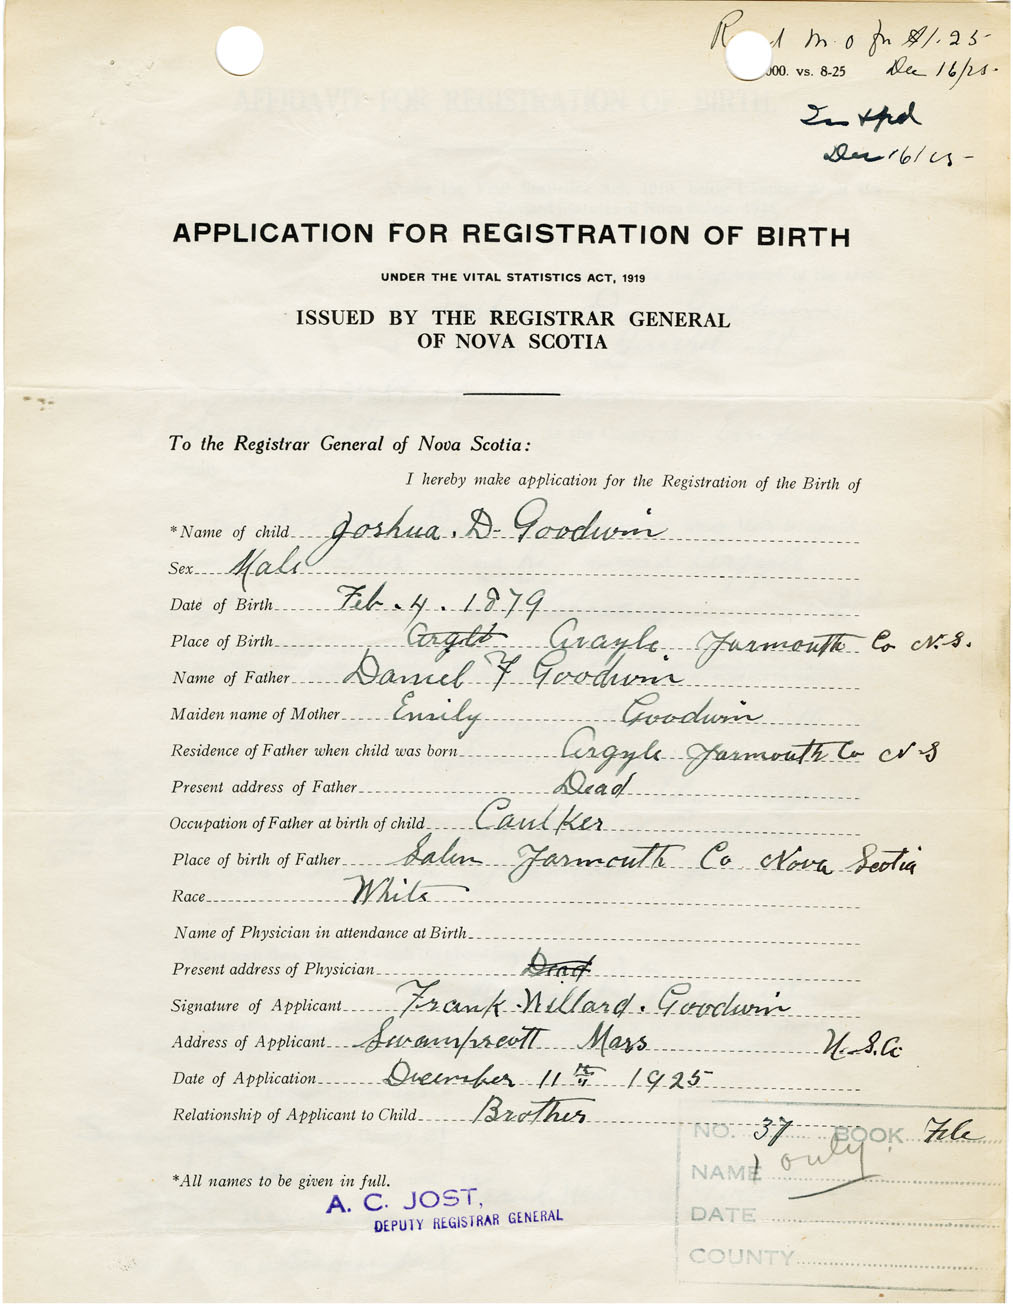 M.O for $1.25
000. vs. 8-25 Dec 16/25.
Dec 16/25-
APPLICATION FOR REGISTRATION OF BIRTH
UNDER THE VITAL STATISTICS ACT, 1919
ISSUED BY THE REGISTRAR GENERAL
OF NOVA SCOTIA
To the Registrar General of Nova Scotia:
I hereby make application for the Registration of the Birth of
*Name of child Joshua. D. Goodwin
Sex Male
Date of Birth Feb. 4. 1879
Place of Birth Argyle Yarmouth Co N.S.
Name of Father Daniel F Goodwin
Maiden name of Mother Emily Goodwin
Residence of Father when child was born Argyle Yarmouth Co N S
Present address of Father Dead
Occupation of Father at birth of child Caulker
Place of birth of Father Salem Yarmouth Co Nova Scotia
Race White
Name of Physician in attendance at Birth
Present address of Physician Dead
Signature of Applicant Frank Willard. Goodwin
Address of Applicant Swampscott Mass U.S.A
Date of Application December 11th 1925
Relationship of Applicant to Child Brother
NO. 37 BOOK File
NAME 1 only
*All names to be given in full.
A. C. JOST,
DEPUTY REGISTRAR GENERAL
DATE
COUNTY